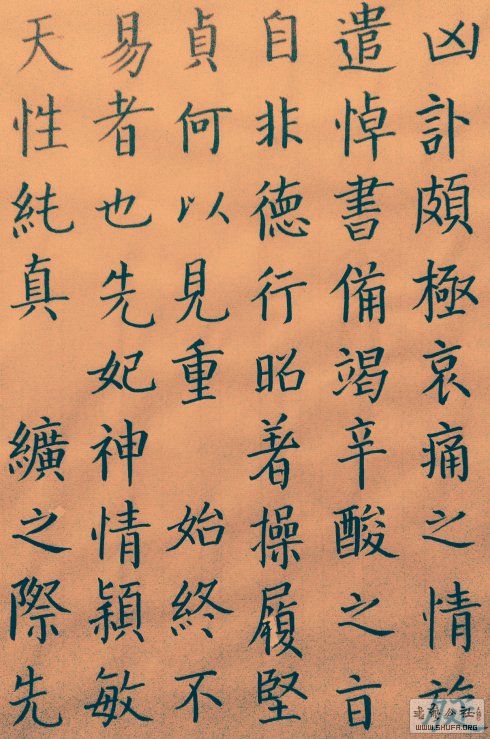 凶訃頗極哀痛之情
遣悼書備竭辛酸之㫖
自非德行昭著操履堅
貞何以見重 始終不
易者也先妃神情穎敏
天性純真 纊之際先
WWW.SHUFA.ORG